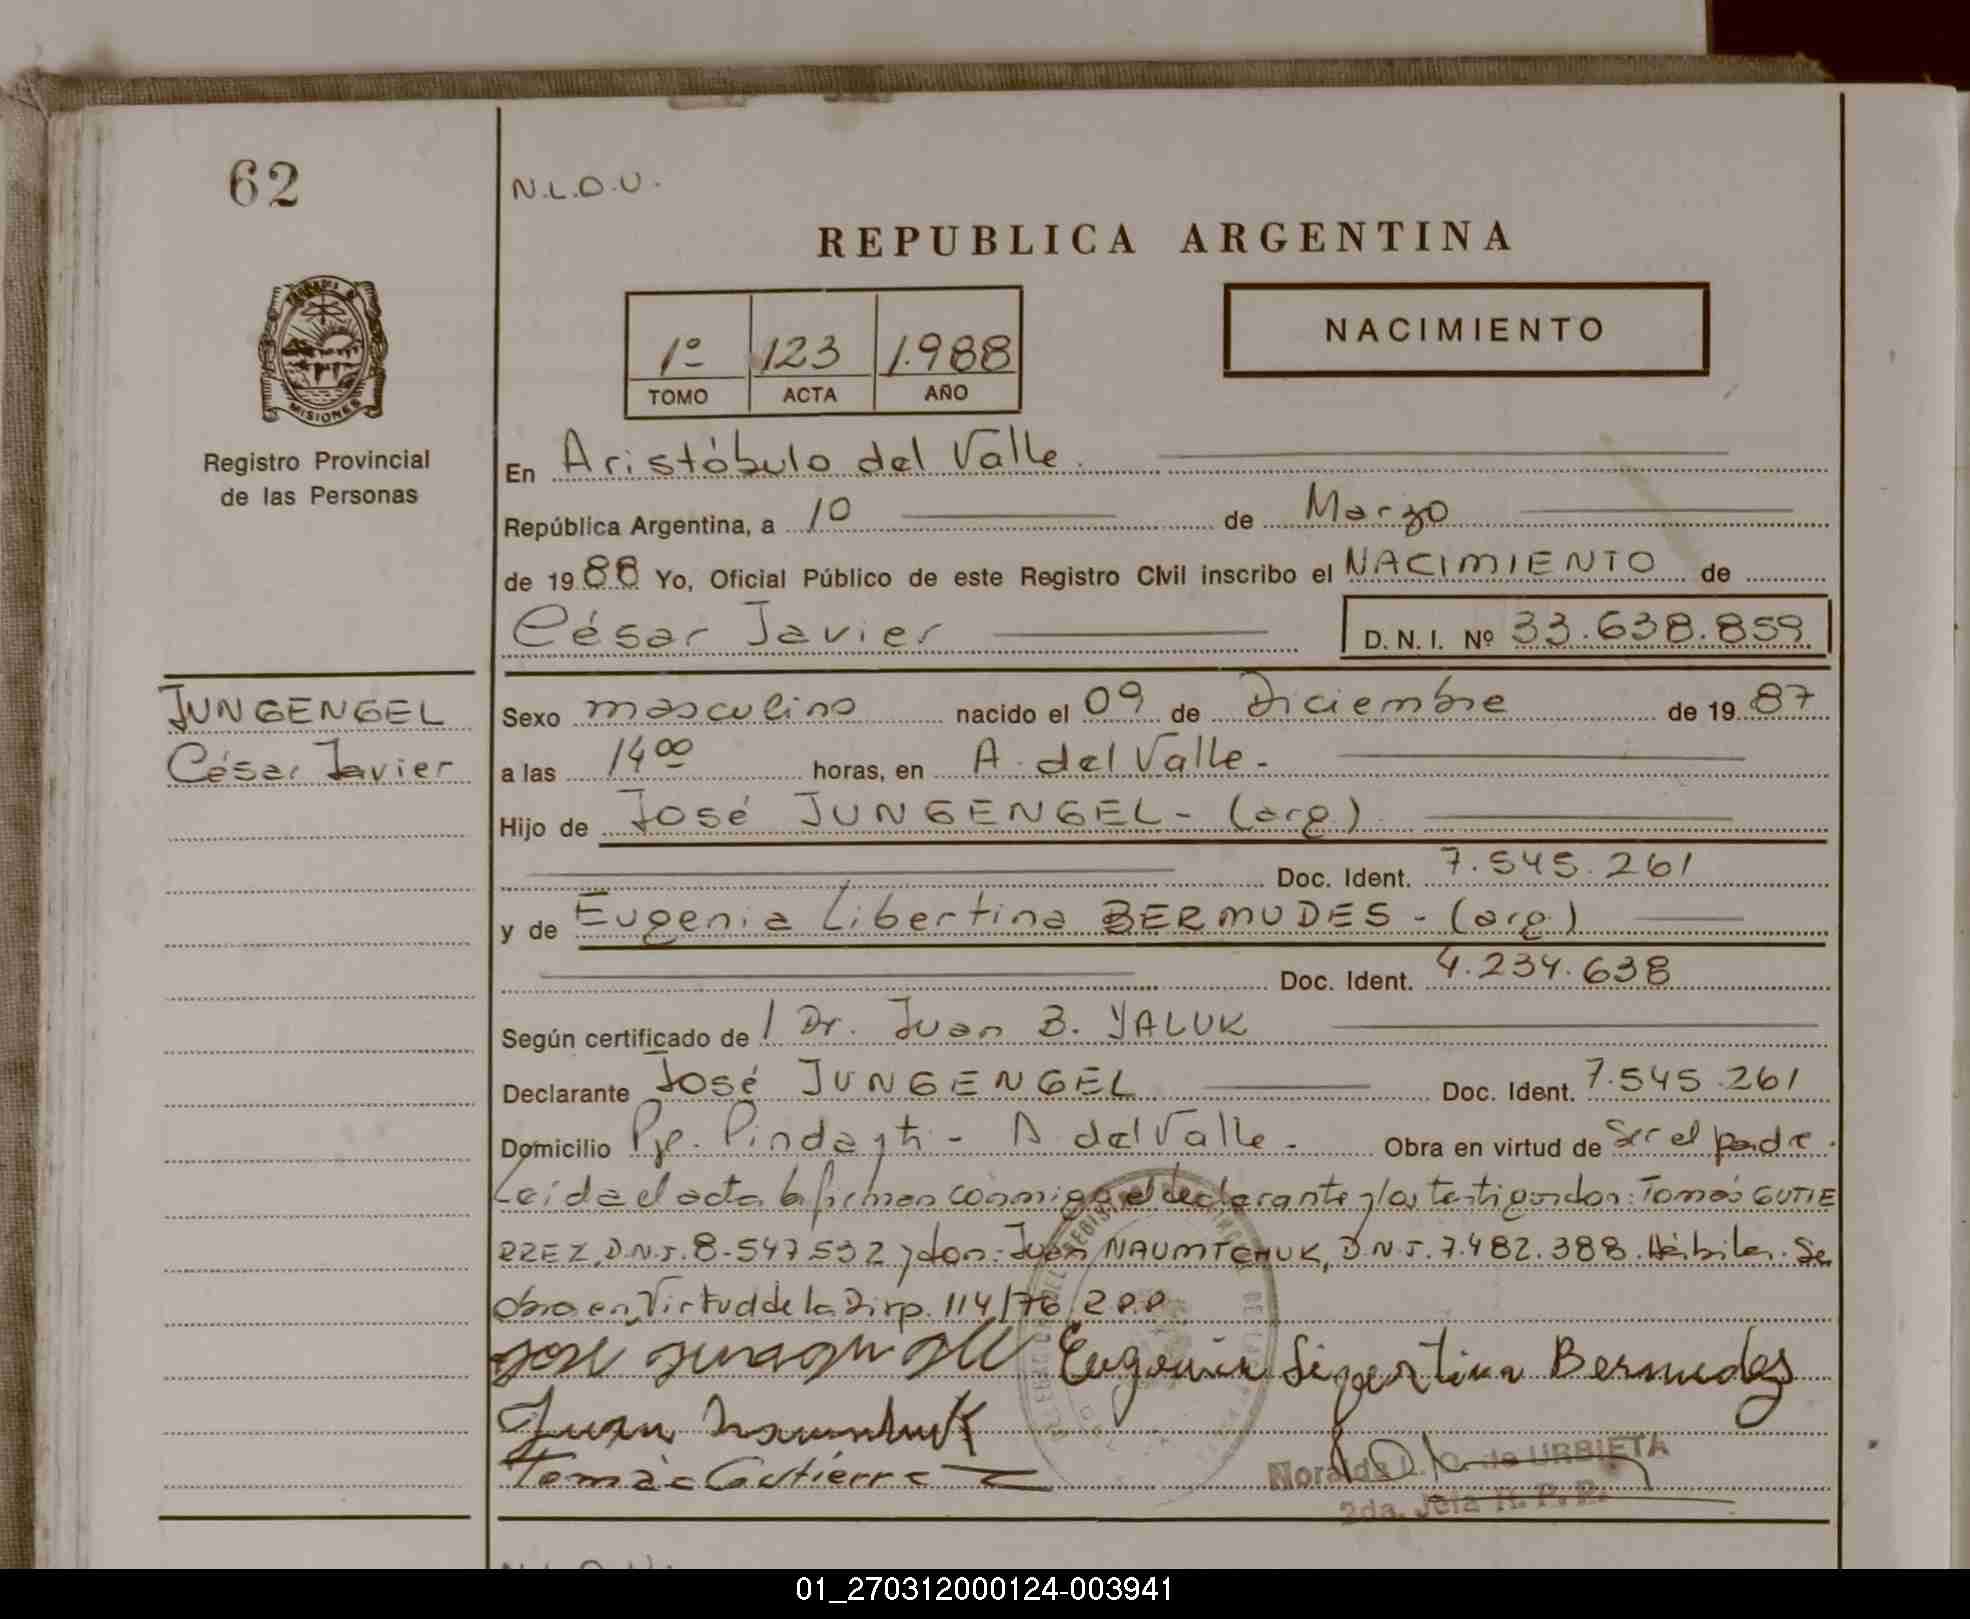 62
N.L.O.U.
REPUBLICA ARGENTINA
1º 123 1.988
TOMO ACTA AÑO
NACIMIENTO
MISIONES
Registro Provincial
de las Personas
En Aristóbulo del Valle.
República Argentina, a 10 de Marzo
de 1988 Yo, Oficial Público de este Registro Civil inscribo el NACIMIENTO de
César Javier D.N.I. Nº 33.638.859
JUNGENGEL
César Javier
Sexo masculino nacido el 09 de Diciembre de 1987
a las 14 00 horas, en A. del Valle.-
Hijo de José JUNGENGEL - (arg)
Doc. Ident. 7.545.261
y de Eugenia Libertina BERMUDES - (arg)
Doc. Ident. 4.234.638
Según certificado de / Dr. Juan B. YALUK
Declarante José JUNGENGEL Doc. Ident. 7.545.261
Domicilio Pje. Pindayti - A. del Valle.- Obra en virtud de Ser el padre.
Leída el acta la firman conmigo el declarante y los testigos don: Tomás GUTIE
RREZ, D.N.I. 8.547.532 y don: Juan NAUMTCHUK, D.N.I. 7.482.388. Hábiles. Se
obra en Virtud de la Disp. 114/76 R.P.P.
José
Eugenia Bermudes
Juan
Tomás Gutierrez
de URBIETA
2da. Jefa R. P. P.
01_270312000124-003941